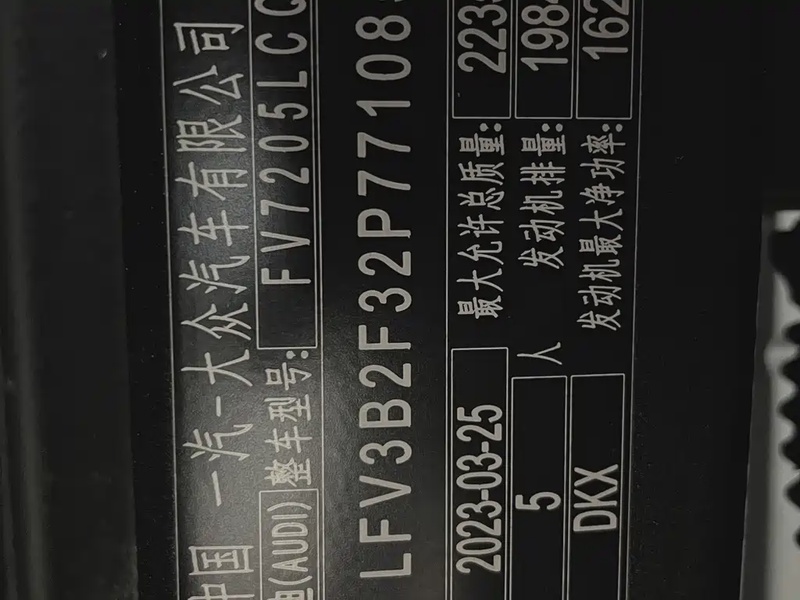 中国 一汽-大众汽车有限公司
(AUDI) 整车型号: FV7205LCC
LFV3B2F32P77108
2023-03-25 最大允许总质量: 223
5 人 发动机排量: 198
DKX 发动机最大净功率: 162